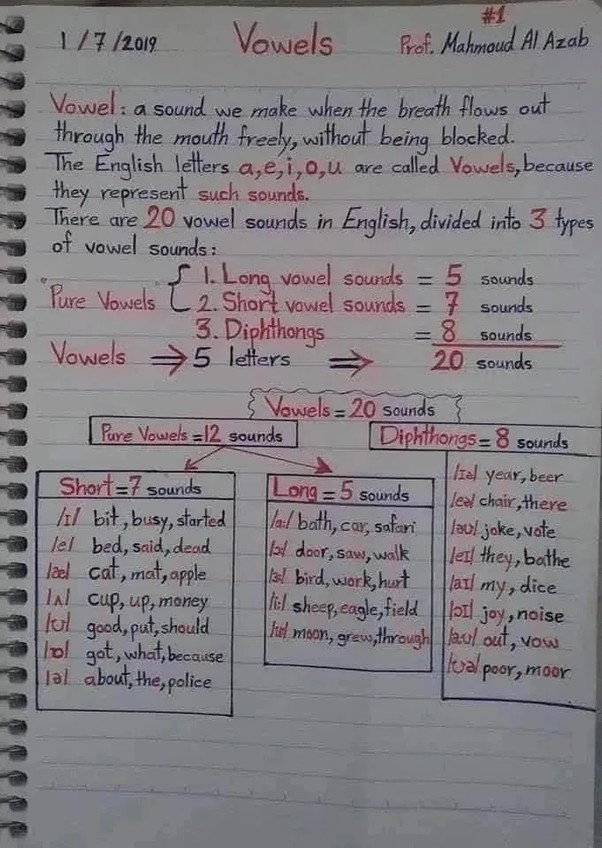 #1
1/7/2019 Vowels Prof. Mahmoud Al Azab
Vowel: a sound we make when the breath flows out
through the mouth freely, without being blocked.
The English letters a,e,i,o,u are called Vowels, because
they represent such sounds.
There are 20 vowel sounds in English, divided into 3 types
of vowel sounds:
1. Long vowel sounds = 5 sounds
Pure Vowels 2. Short vowel sounds = 7 sounds
3. Diphthongs = 8 sounds
Vowels ⇒ 5 letters ⇒ 20 sounds
Vowels = 20 sounds
Pure Vowels = 12 sounds
Diphthongs = 8 sounds
Short = 7 sounds
/ɪ/ bit, busy, started
/e/ bed, said, dead
/æ/ cat, mat, apple
/ʌ/ cup, up, money
/ʊ/ good, put, should
/ɒ/ got, what, because
/ə/ about, the, police
Long = 5 sounds
/ɑ:/ bath, car, safari
/ɔ:/ door, saw, walk
/ɜ:/ bird, work, hurt
/i:/ sheep, eagle, field
/u:/ moon, grew, through
/ɪə/ year, beer
/eə/ chair, there
/əʊ/ joke, vote
/eɪ/ they, bathe
/aɪ/ my, dice
/ɔɪ/ joy, noise
/aʊ/ out, vow
/ʊə/ poor, moor